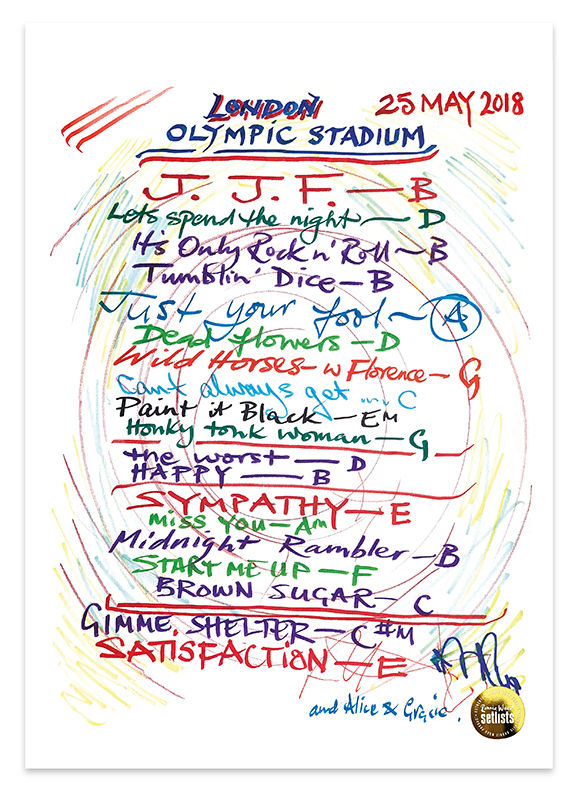 LONDON 25 MAY 2018
OLYMPIC STADIUM
J. J. F. — B
Lets spend the night — D
It's Only Rock n' Roll ~ B
Tumblin' Dice — B
Just your fool ~ A
Dead flowers — D
Wild Horses — w Florence — G
Cant always get .... C
Paint it Black — Em
Honky tonk woman — G
the worst — D
HAPPY — B
SYMPATHY — E
Miss You — Am
Midnight Rambler — B
START ME UP — F
BROWN SUGAR — C
GIMME SHELTER — C#M
SATISFACTION — E
and Alice & Gracie.
Ronnie Wood
setlists